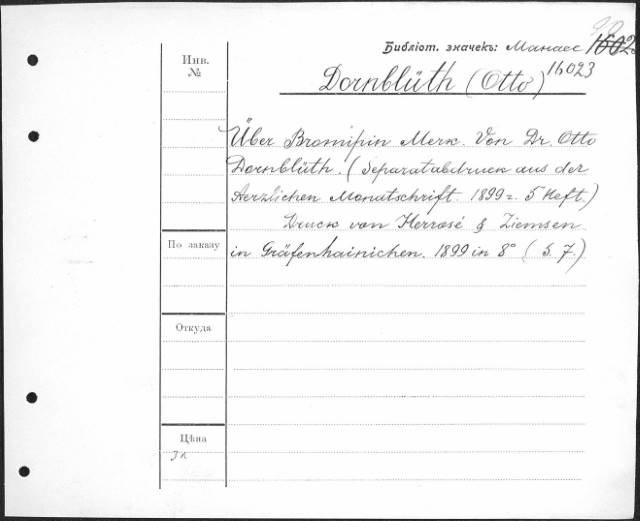 Библіот. значекъ: Манасс
16023
Инв.
№
Dornblüth (Otto)
Über Bromipin Merk. Von Dr. Otto
Dornblüth. (Separatabdruck aus der
Aerzlichen Monatschrift. 1899 г. 5 Heft.)
Druck von Herrosé & Ziemsen
in Gräfenhainichen. 1899 in 8° (S. 7.)
По заказу
Откуда
Цѣна